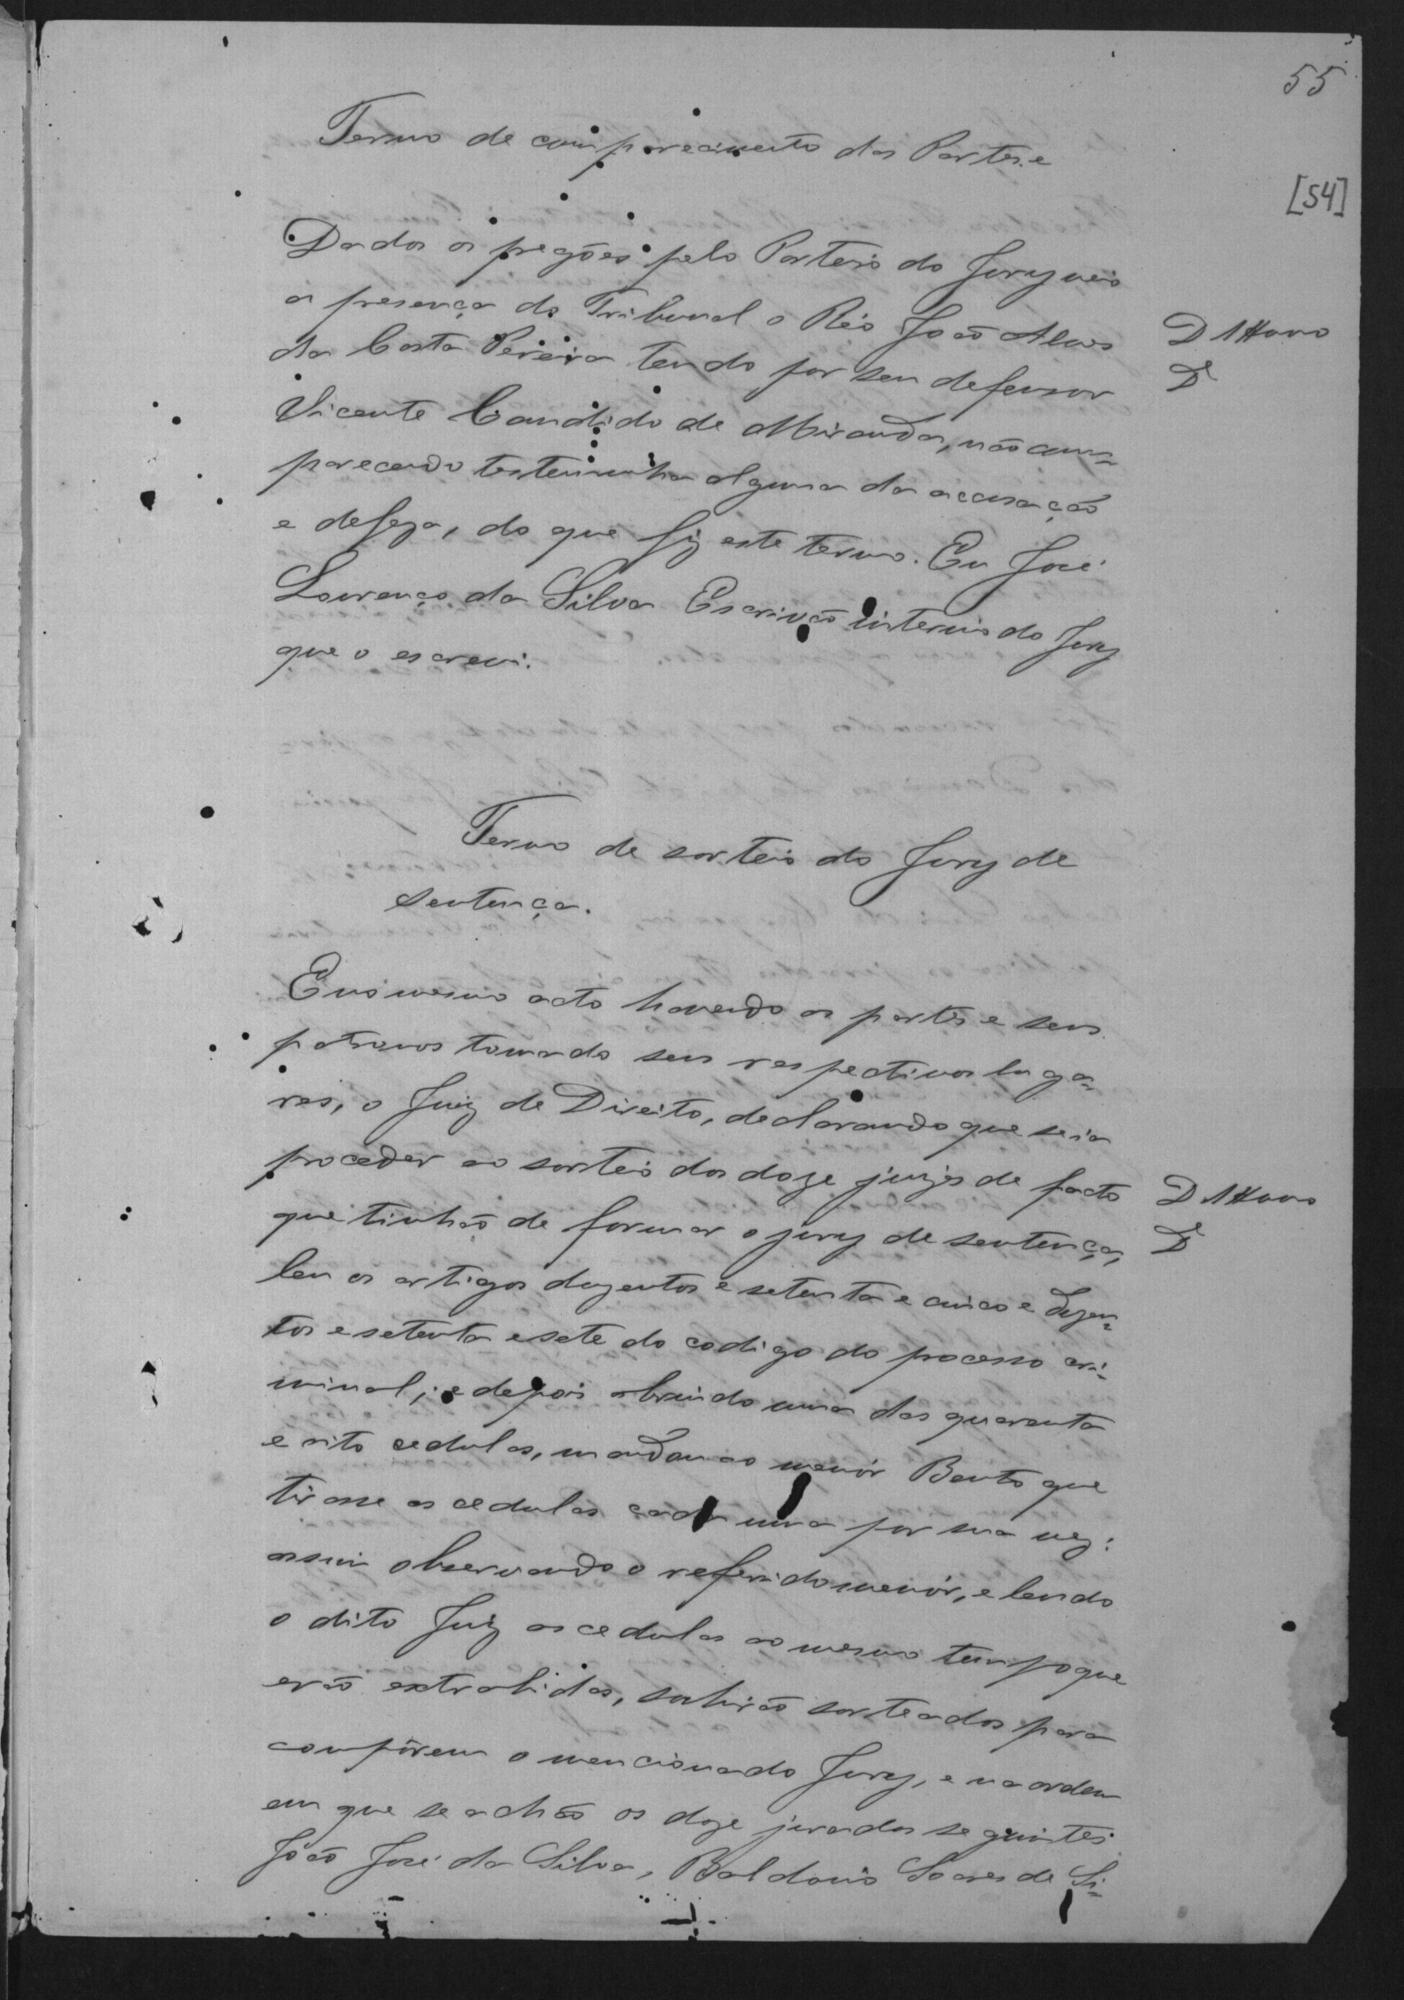 55
[54]
Termo de comparecimento das Partes e
Dados os pregões pelo Porteiro do Jury veio
a presença do Tribunal o Réo João Alves
da Costa Pereira tendo por seu defensor
Vicente Candido de Miranda, não com=
parecendo testemunha alguma da accusação
e defeza, do que fiz este termo. Eu José
Lourenço da Silva Escrivão interino do Jury
que o escrevi.
Termo de sorteio do Jury de
sentença.
E no mesmo acto havendo as partes e seus
patronos tomado seus respectivos luga=
res, o Juiz de Direito, declarando que se ia
proceder ao sorteio dos doze juizes de facto
que tinhão de formar o jury de sentença,
leu os artigos duzentos e setenta e cinco e duzen=
tos e setenta e sete do codigo do processo cri=
minal; e depois abrindo uma das quarenta
e oito cedulas, mandou ao menór Bento que
tirasse as cedulas cada uma por sua vez:
assim observando o referido menór, e lendo
o dito Juiz as cedulas ao mesmo tempo que
erão extrahidas, sahirão sorteados para
compôrem o mencionado Jury, e na ordem
em que se achão os doze jurados seguintes
João José da Silva, Baldoino Soares de Si=